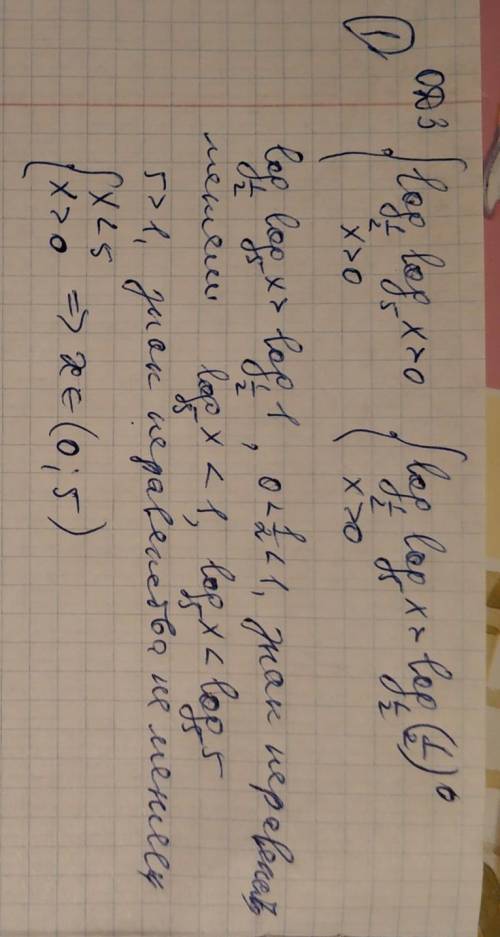 ① ОДЗ
{ log_{1/2} log_5 x > 0
x > 0
{ log_{1/2} log_5 x > log_{1/2} (1/2)^0
x > 0
log_{1/2} log_5 x > log_{1/2} 1, 0 < 1/2 < 1, знак неравенств
меняем log_5 x < 1, log_5 x < log_5 5
5 > 1, знак неравенства не меняем
{ x < 5
x > 0 => x ∈ (0; 5)